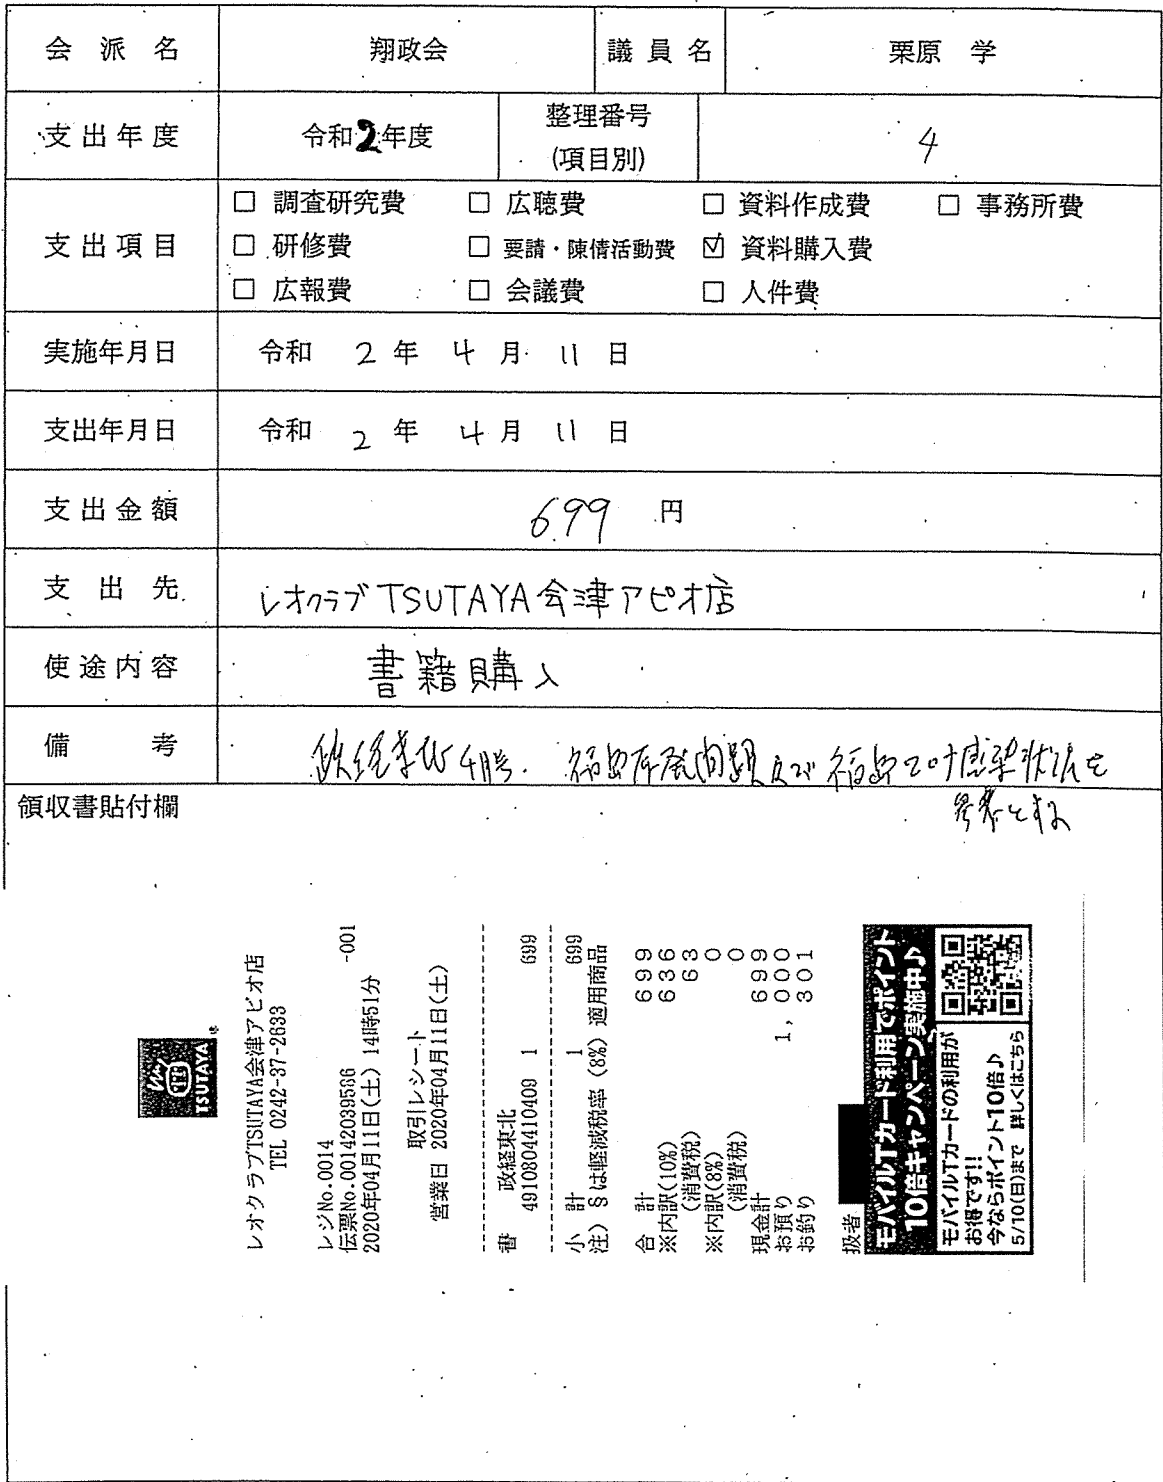 会派名 翔政会 議員名 栗原 学
支出年度 令和2年度 整理番号(項目別) 4
支出項目
□ 調査研究費 □ 広聴費 □ 資料作成費 □ 事務所費
□ 研修費 □ 要請・陳情活動費 ☑ 資料購入費
□ 広報費 □ 会議費 □ 人件費
実施年月日 令和 2 年 4 月 11 日
支出年月日 令和 2 年 4 月 11 日
支出金額 699 円
支出先 レオクラブTSUTAYA会津アピオ店
使途内容 書籍購入
備考 政経東北 4月号. 福島原発問題及び福島コロナ感染状況を
参考とする
領収書貼付欄
TSUTAYA
レオクラブTSUTAYA会津アピオ店
TEL 0242-37-2633
レジNo.0014 -001
伝票No.00142039586
2020年04月11日(土) 14時51分
取引レシート
営業日 2020年04月11日(土)
書 政経東北
4910804410409 1 699
小計 1 699
注) § は軽減税率 (8%) 適用商品
合計 699
※内訳(10%) 636
(消費税) 63
※内訳(8%) 0
(消費税) 0
現金計 699
お預り 1,000
お釣り 301
扱者
モバイルTカード利用でポイント
10倍キャンペーン実施中♪
モバイルTカードの利用が
お得です!!
今ならポイント10倍♪
5/10(日)まで 詳しくはこちら